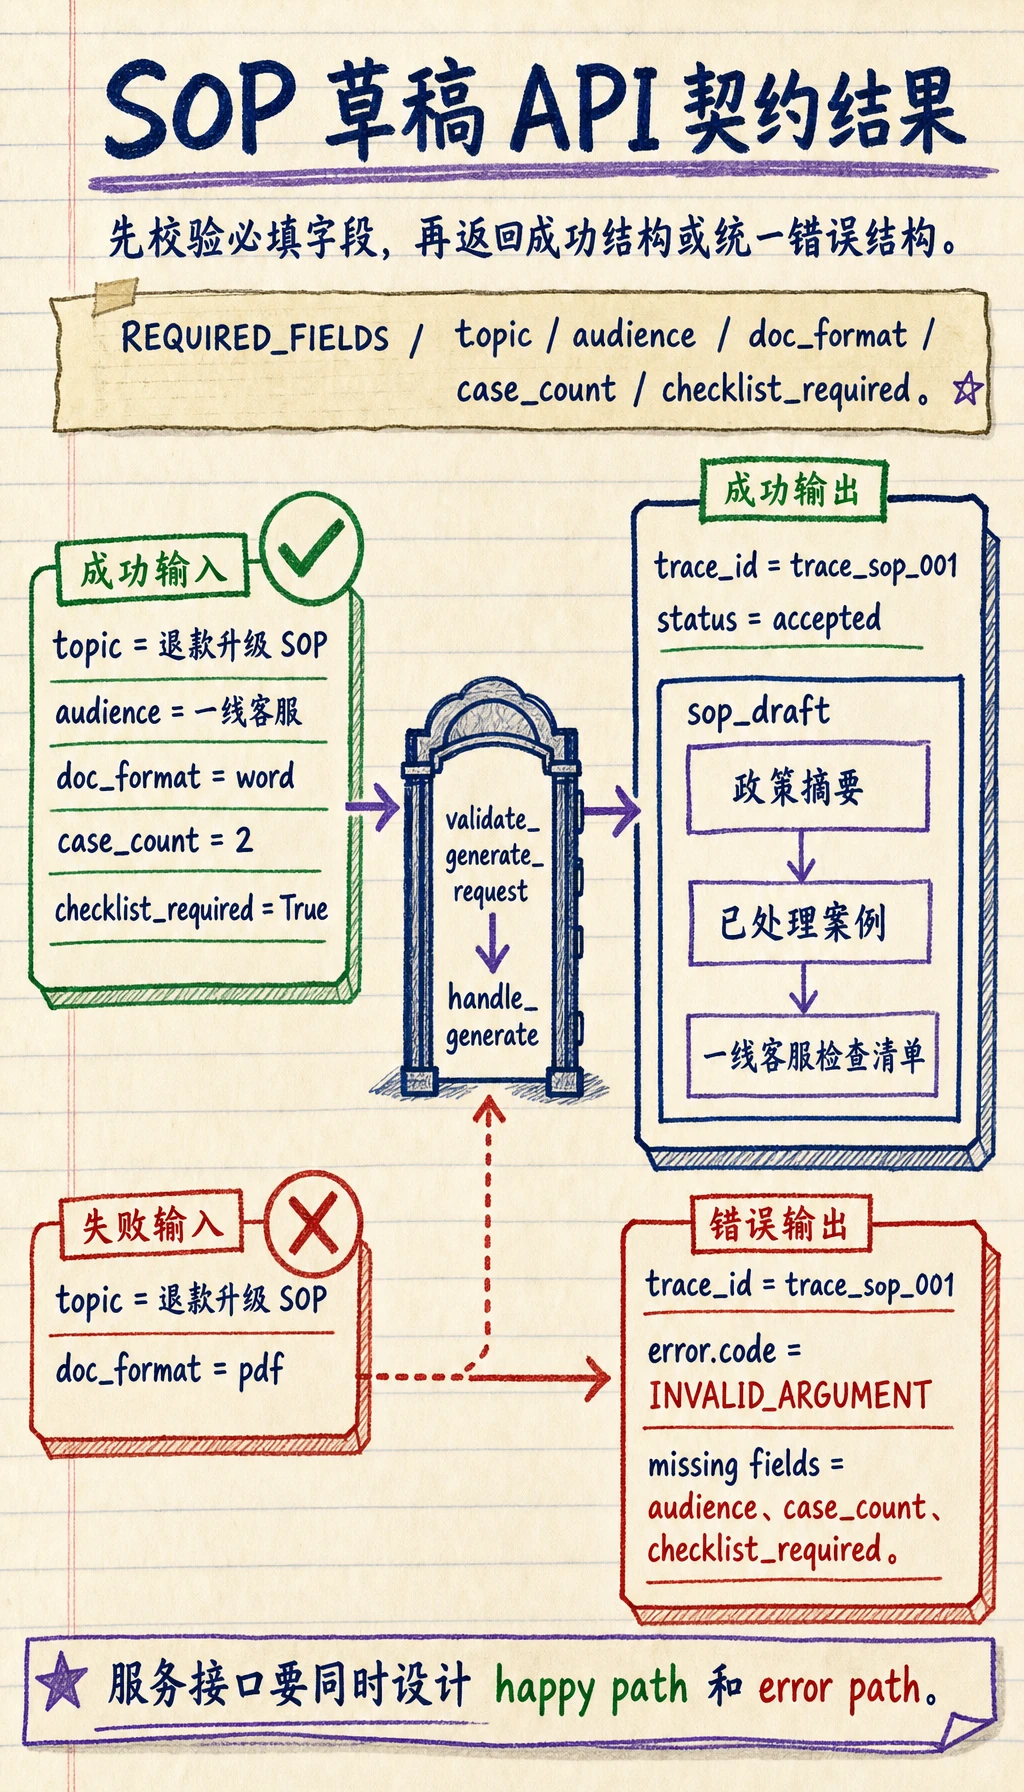 SOP 草稿 API 契约结果
先校验必填字段，再返回成功结构或统一错误结构。
REQUIRED_FIELDS / topic / audience / doc_format /
case_count / checklist_required。
成功输入
topic = 退款升级 SOP
audience = 一线客服
doc_format = word
case_count = 2
checklist_required = True
validate_
generate_
request
handle_
generate
成功输出
trace_id = trace_sop_001
status = accepted
sop_draft
政策摘要
已处理案例
一线客服检查清单
失败输入
topic = 退款升级 SOP
doc_format = pdf
错误输出
trace_id = trace_sop_001
error.code =
INVALID_ARGUMENT
missing fields =
audience、case_count、
checklist_required。
服务接口要同时设计 happy path 和 error path。